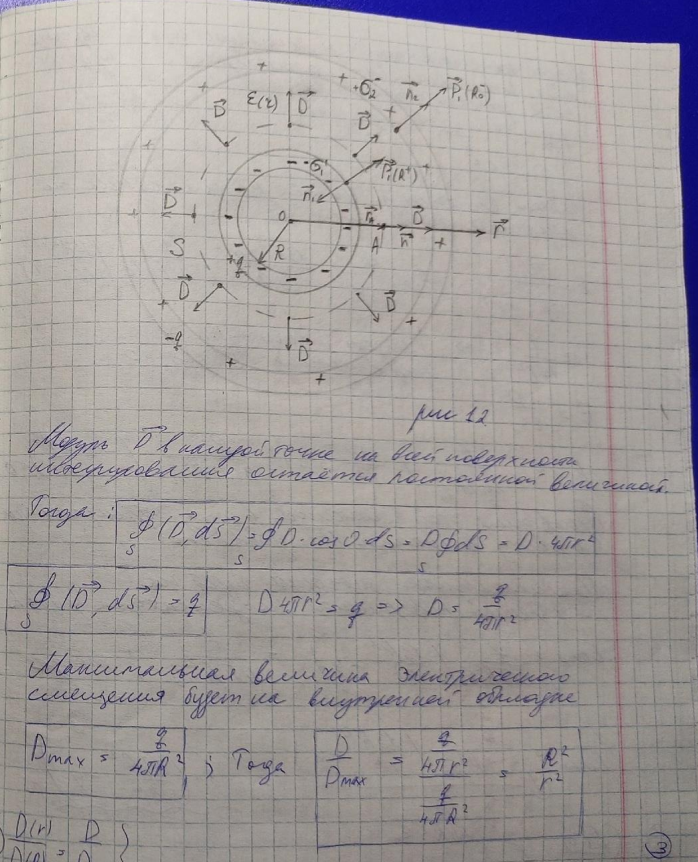 ε(r) D⃗
D⃗
+σ₂'
n⃗₂
P⃗₁(R₀)
D⃗
-σ₁'
P⃗₁(R)
n⃗₁
D⃗
0
A
n⃗
D⃗
r⃗
S
R
+q
D⃗
D⃗
-q
D⃗
рис 12
Модуль D⃗ в каждой точке на всей поверхности
интегрирования остаётся постоянной величиной.
Тогда: ∮_S (D⃗, dS⃗) = ∮_S D·cos0·dS = D∮_S dS = D·4πr²
∮_S (D⃗, dS⃗) = q D4πr² = q => D = q/4πr²
Максимальная величина электрического
смещения будет на внутренней обкладке
Dmax = q/4πR² ; Тогда D/Dmax = (q/4πr²)/(q/4πR²) = R²/r²
3